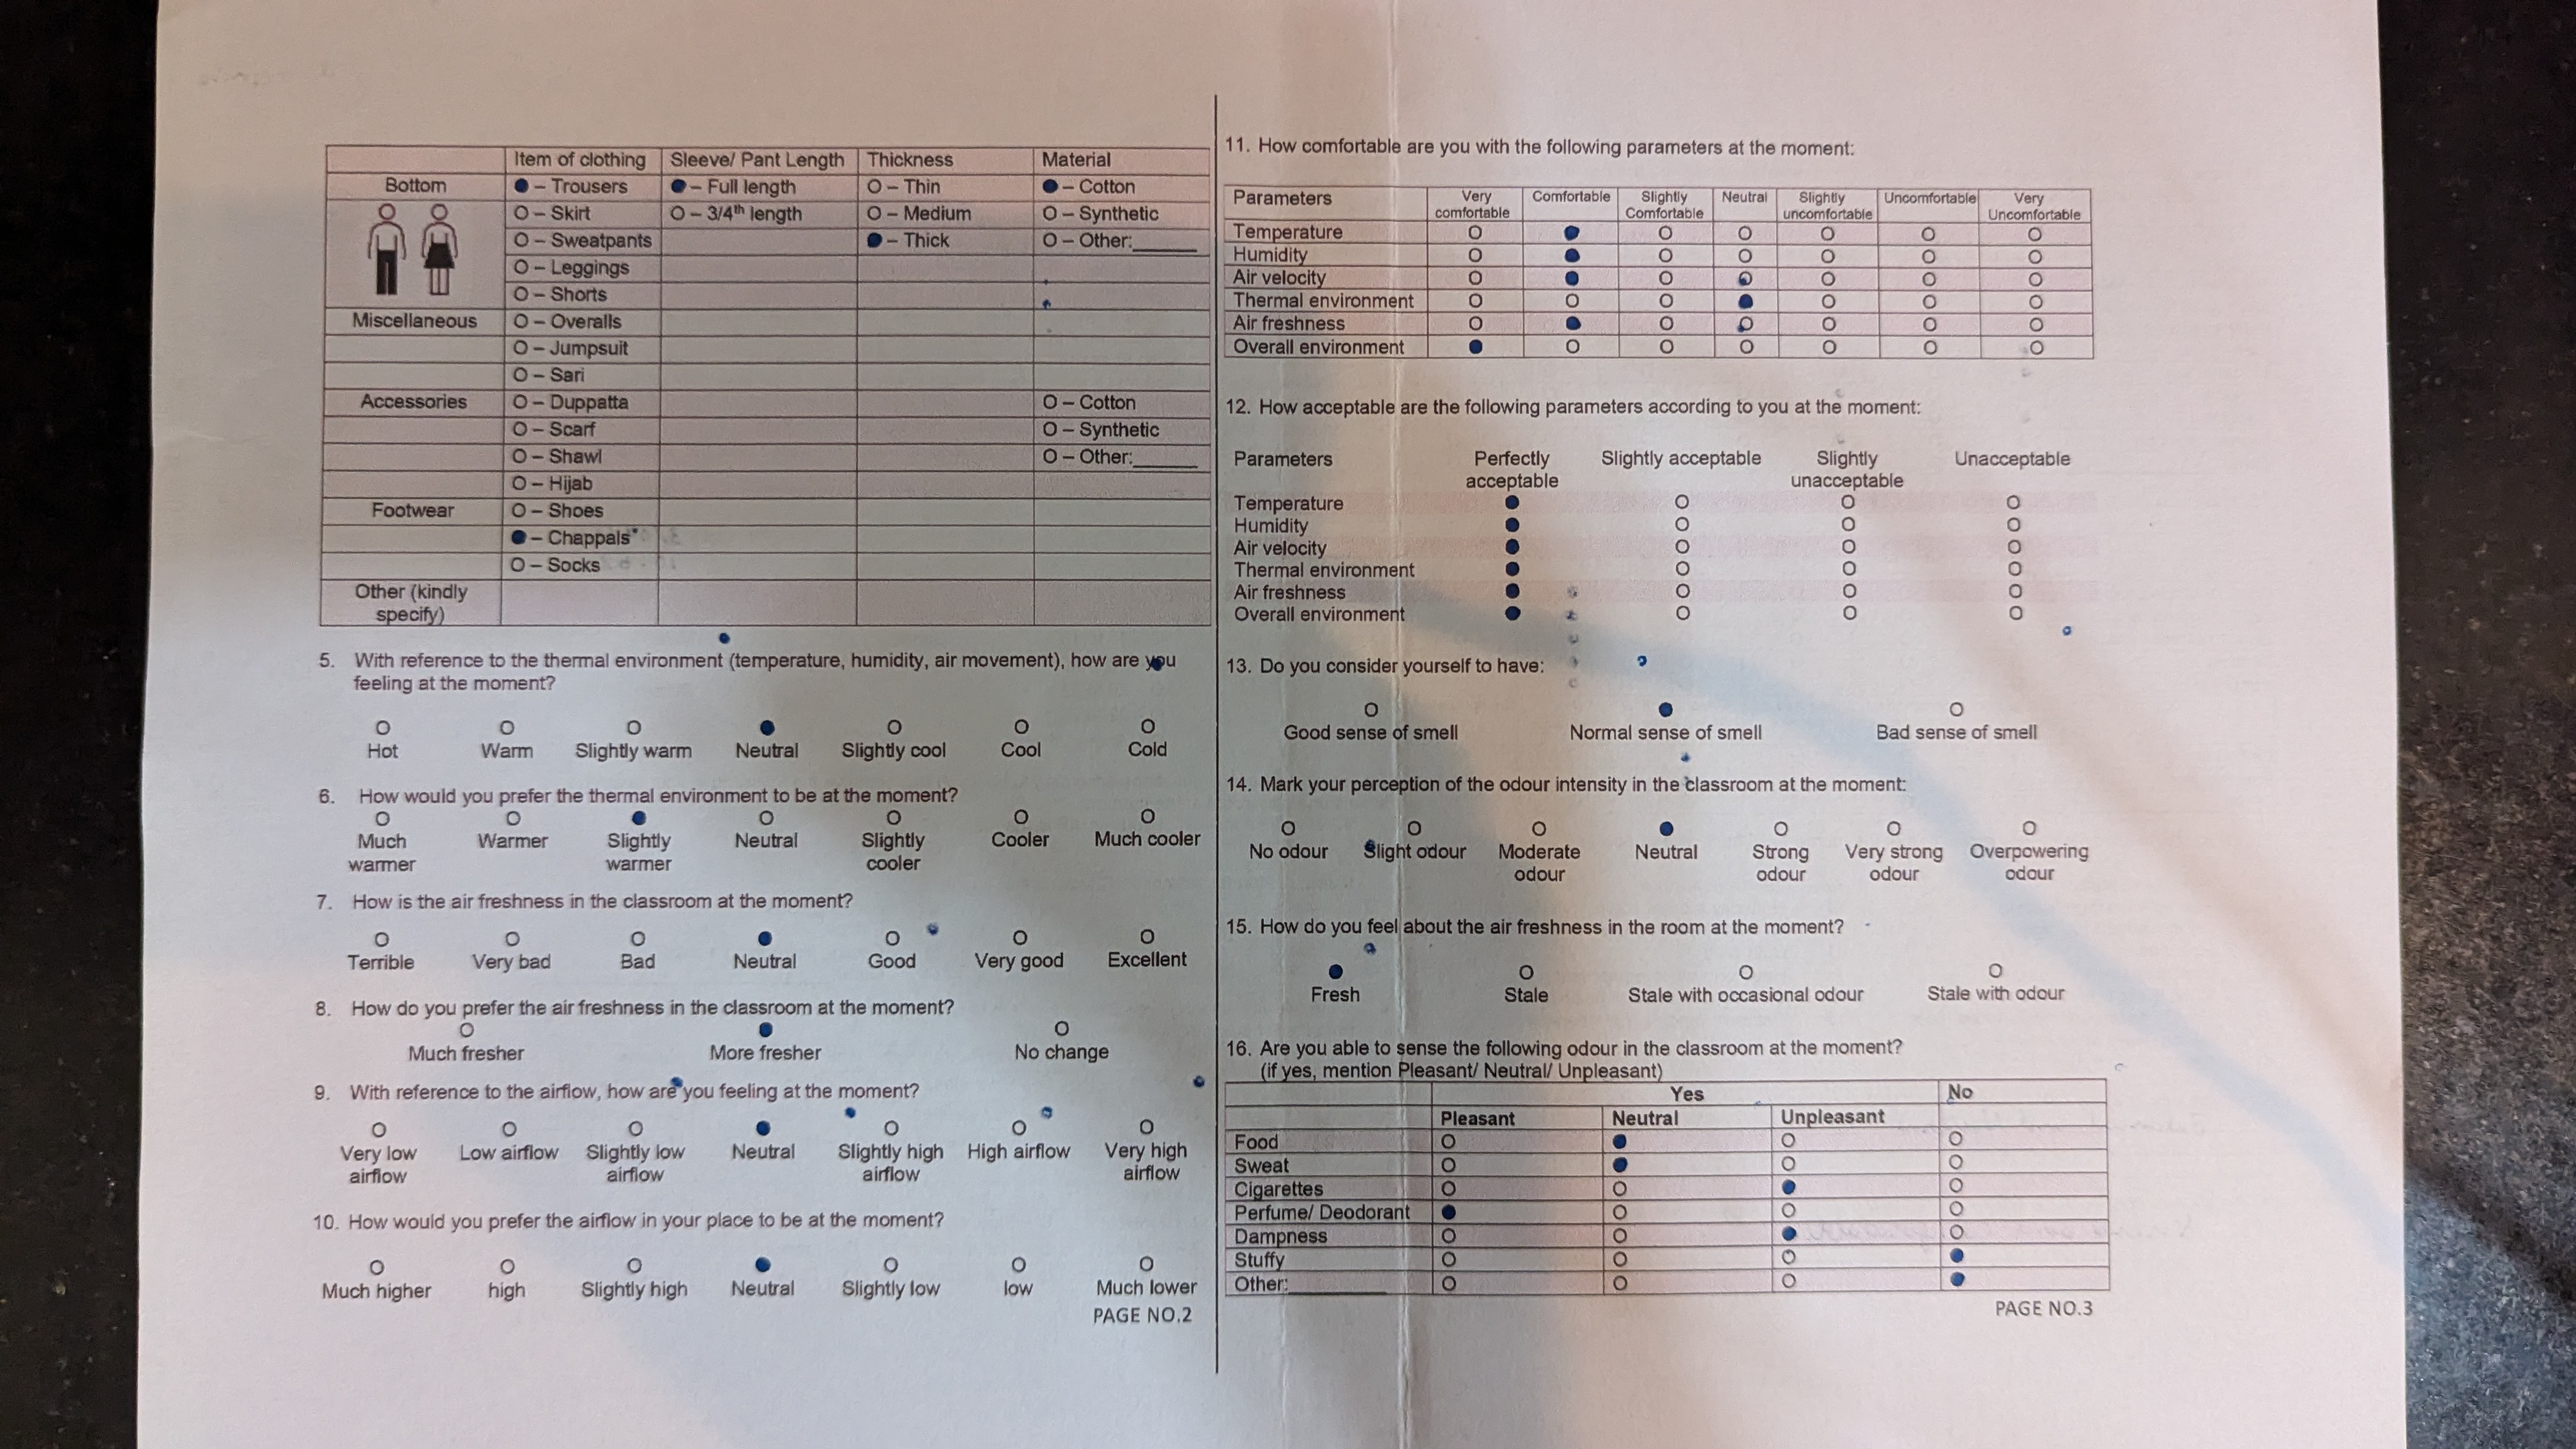 Item of clothing Sleeve/ Pant Length Thickness Material
Bottom ● – Trousers ● – Full length O – Thin ● – Cotton
O – Skirt O – 3/4th length O – Medium O – Synthetic
O – Sweatpants ● – Thick O – Other:______
O – Leggings
O – Shorts
Miscellaneous O – Overalls
O – Jumpsuit
O – Sari
Accessories O – Duppatta O – Cotton
O – Scarf O – Synthetic
O – Shawl O – Other:______
O – Hijab
Footwear O – Shoes
● – Chappals
O – Socks
Other (kindly
specify)
5. With reference to the thermal environment (temperature, humidity, air movement), how are you
feeling at the moment?
O O O ● O O O
Hot Warm Slightly warm Neutral Slightly cool Cool Cold
6. How would you prefer the thermal environment to be at the moment?
O O ● O O O O
Much Warmer Slightly Neutral Slightly Cooler Much cooler
warmer warmer cooler
7. How is the air freshness in the classroom at the moment?
O O O ● O O O
Terrible Very bad Bad Neutral Good Very good Excellent
8. How do you prefer the air freshness in the classroom at the moment?
O ● O
Much fresher More fresher No change
9. With reference to the airflow, how are you feeling at the moment?
O O O ● O O O
Very low Low airflow Slightly low Neutral Slightly high High airflow Very high
airflow airflow airflow airflow
10. How would you prefer the airflow in your place to be at the moment?
O O O ● O O O
Much higher high Slightly high Neutral Slightly low low Much lower
PAGE NO.2
11. How comfortable are you with the following parameters at the moment:
Parameters Very Comfortable Slightly Neutral Slightly Uncomfortable Very
comfortable Comfortable uncomfortable Uncomfortable
Temperature O ● O O O O O
Humidity O ● O O O O O
Air velocity O ● O O O O O
Thermal environment O O O ● O O O
Air freshness O ● O O O O O
Overall environment ● O O O O O O
12. How acceptable are the following parameters according to you at the moment:
Parameters Perfectly Slightly acceptable Slightly Unacceptable
acceptable unacceptable
Temperature ● O O O
Humidity ● O O O
Air velocity ● O O O
Thermal environment ● O O O
Air freshness ● O O O
Overall environment ● O O O
13. Do you consider yourself to have:
O ● O
Good sense of smell Normal sense of smell Bad sense of smell
14. Mark your perception of the odour intensity in the classroom at the moment:
O O O ● O O O
No odour Slight odour Moderate Neutral Strong Very strong Overpowering
odour odour odour odour
15. How do you feel about the air freshness in the room at the moment?
● O O O
Fresh Stale Stale with occasional odour Stale with odour
16. Are you able to sense the following odour in the classroom at the moment?
(if yes, mention Pleasant/ Neutral/ Unpleasant)
Yes No
Pleasant Neutral Unpleasant
Food O ● O O
Sweat O ● O O
Cigarettes O O ● O
Perfume/ Deodorant ● O O O
Dampness O O ● O
Stuffy O O O ●
Other:__________ O O O ●
PAGE NO.3